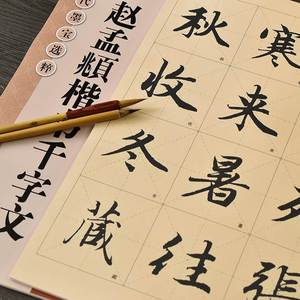 張
寒来暑往
秋收冬藏
代墨宝选粹
赵孟頫楷书千字文